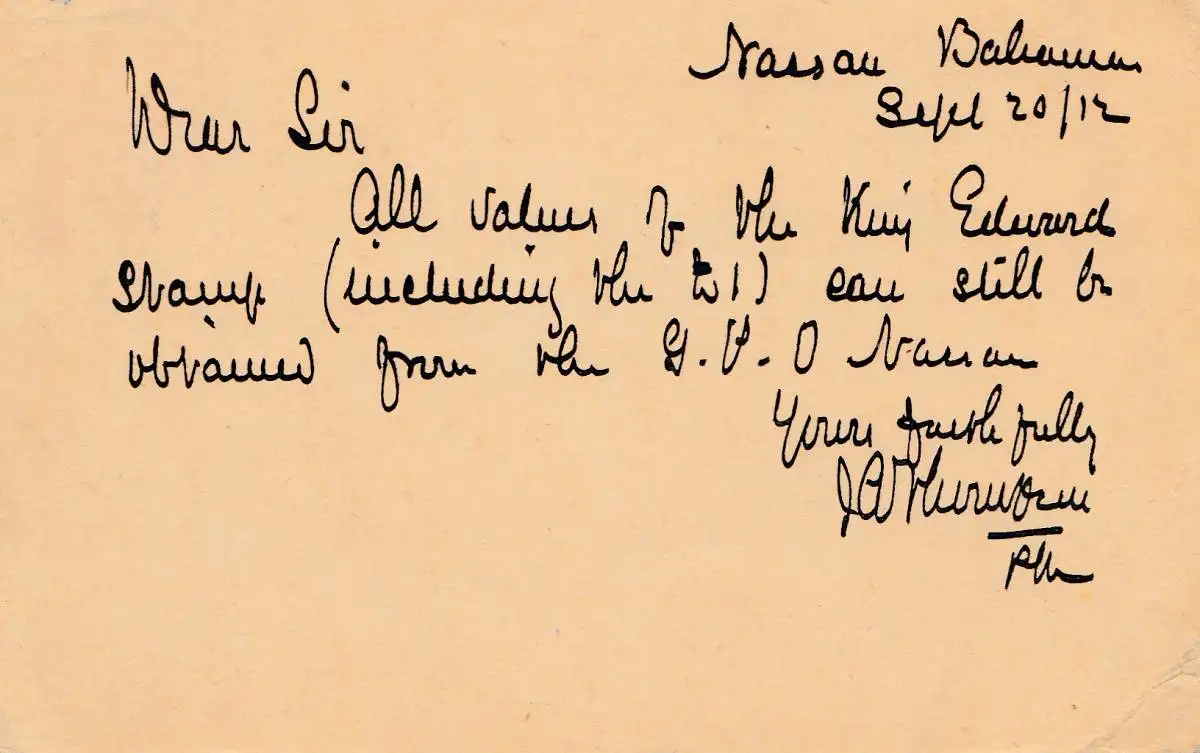 Nassau Bahamas
Sept 20/12
Dear Sir
All values of the King Edward
Stamp (including the £1) can still be
obtained from the G.P.O Nassau
Yours faithfully
PM